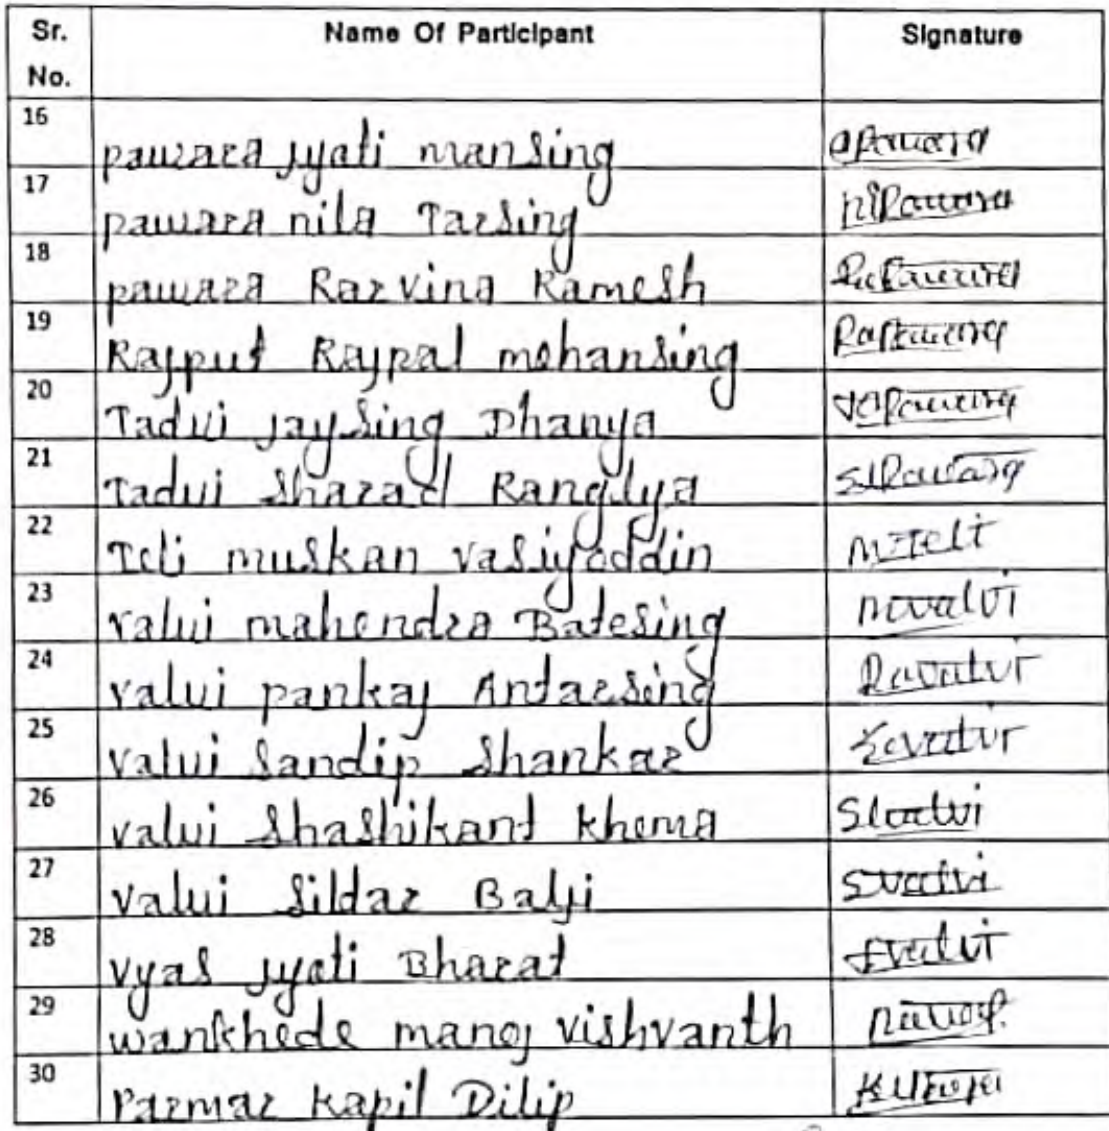 Sr. No. Name Of Participant Signature
16 pawara jyoti mansing
17 pawara nila Tarsing
18 pawara Rarvina Ramesh
19 Rajput Rajpal mohansing
20 Tadvi jaysing Dhanya
21 Tadvi Sharad Rangilya
22 Teli muskan vasiyoddin mzteli
23 valvi mahendra Batesing mvalvi
24 valvi pankaj Antarsing
25 valvi Sandip Shankar
26 valvi Shashikant khema
27 valvi Sildar Balji svalvi
28 vyas jyoti Bharat
29 wankhede manoj vishvanth
30 parmar kapil Dilip